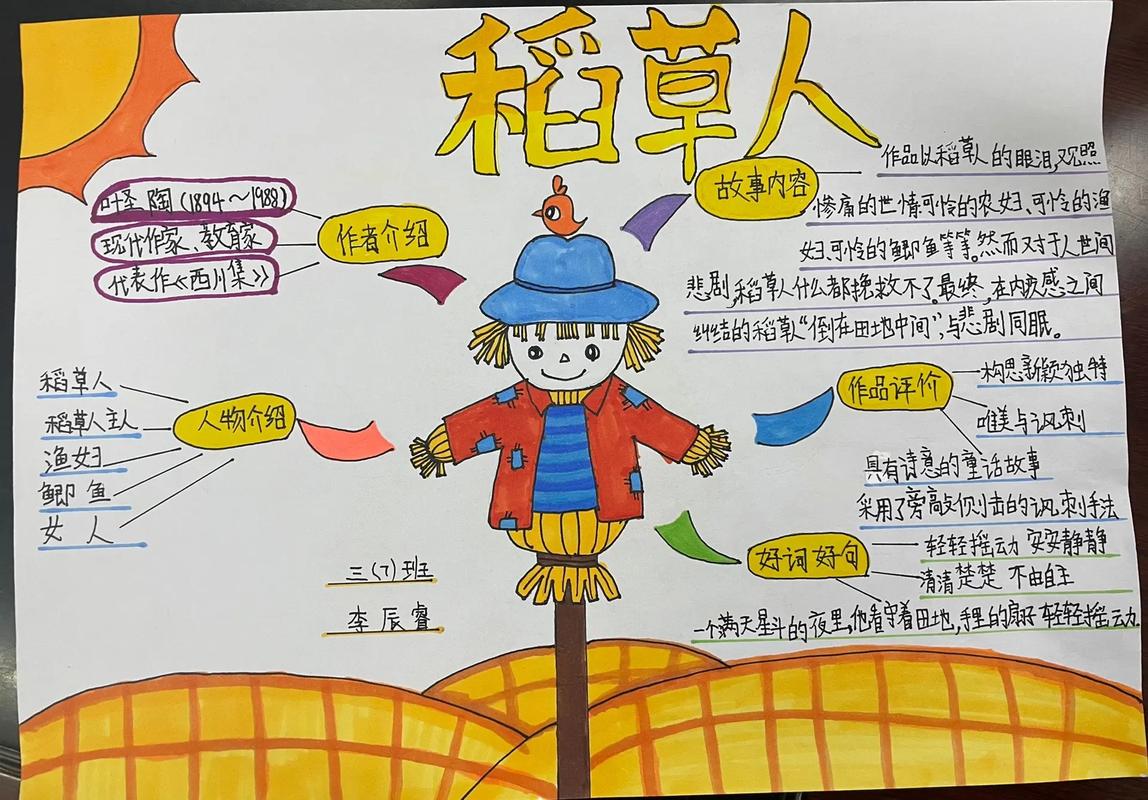 稻草人
作者介绍
叶圣陶(1894～1988)
现代作家、教育家
代表作《西川集》
人物介绍
稻草人
稻草人主人
渔妇
鲫鱼
女人
三(7)班
李辰睿
故事内容
作品以稻草人的眼泪,观照
惨痛的世情可怜的农妇、可怜的渔
妇、可怜的鲫鱼等等。然而对于人世间
悲剧,稻草人什么都挽救不了。最终,在内疚感之间
纠结的稻草“倒在田地中间”,与悲剧同眠。
作品评价
构思新颖独特
唯美与讽刺
具有诗意的童话故事
采用了旁敲侧击的讽刺手法
好词好句
轻轻摇动 安安静静
清清楚楚 不由自主
一个满天星斗的夜里,他看守着田地,手里的扇子轻轻摇动